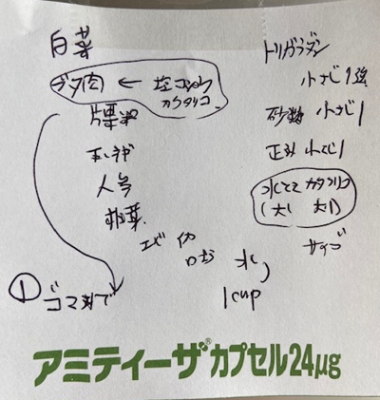 白菜
ブタ肉 ← 塩コショウ
カタクリコ
片栗粉
玉ネギ
人参
エビ イカ
水
1cup
① ゴマ油で
トリガラダシ
小さじ1強
砂糖 小さじ1
正油 小さじ1
水とき カタクリコ
(大1 大1)
サイゴ
アミティーザ®カプセル24μg